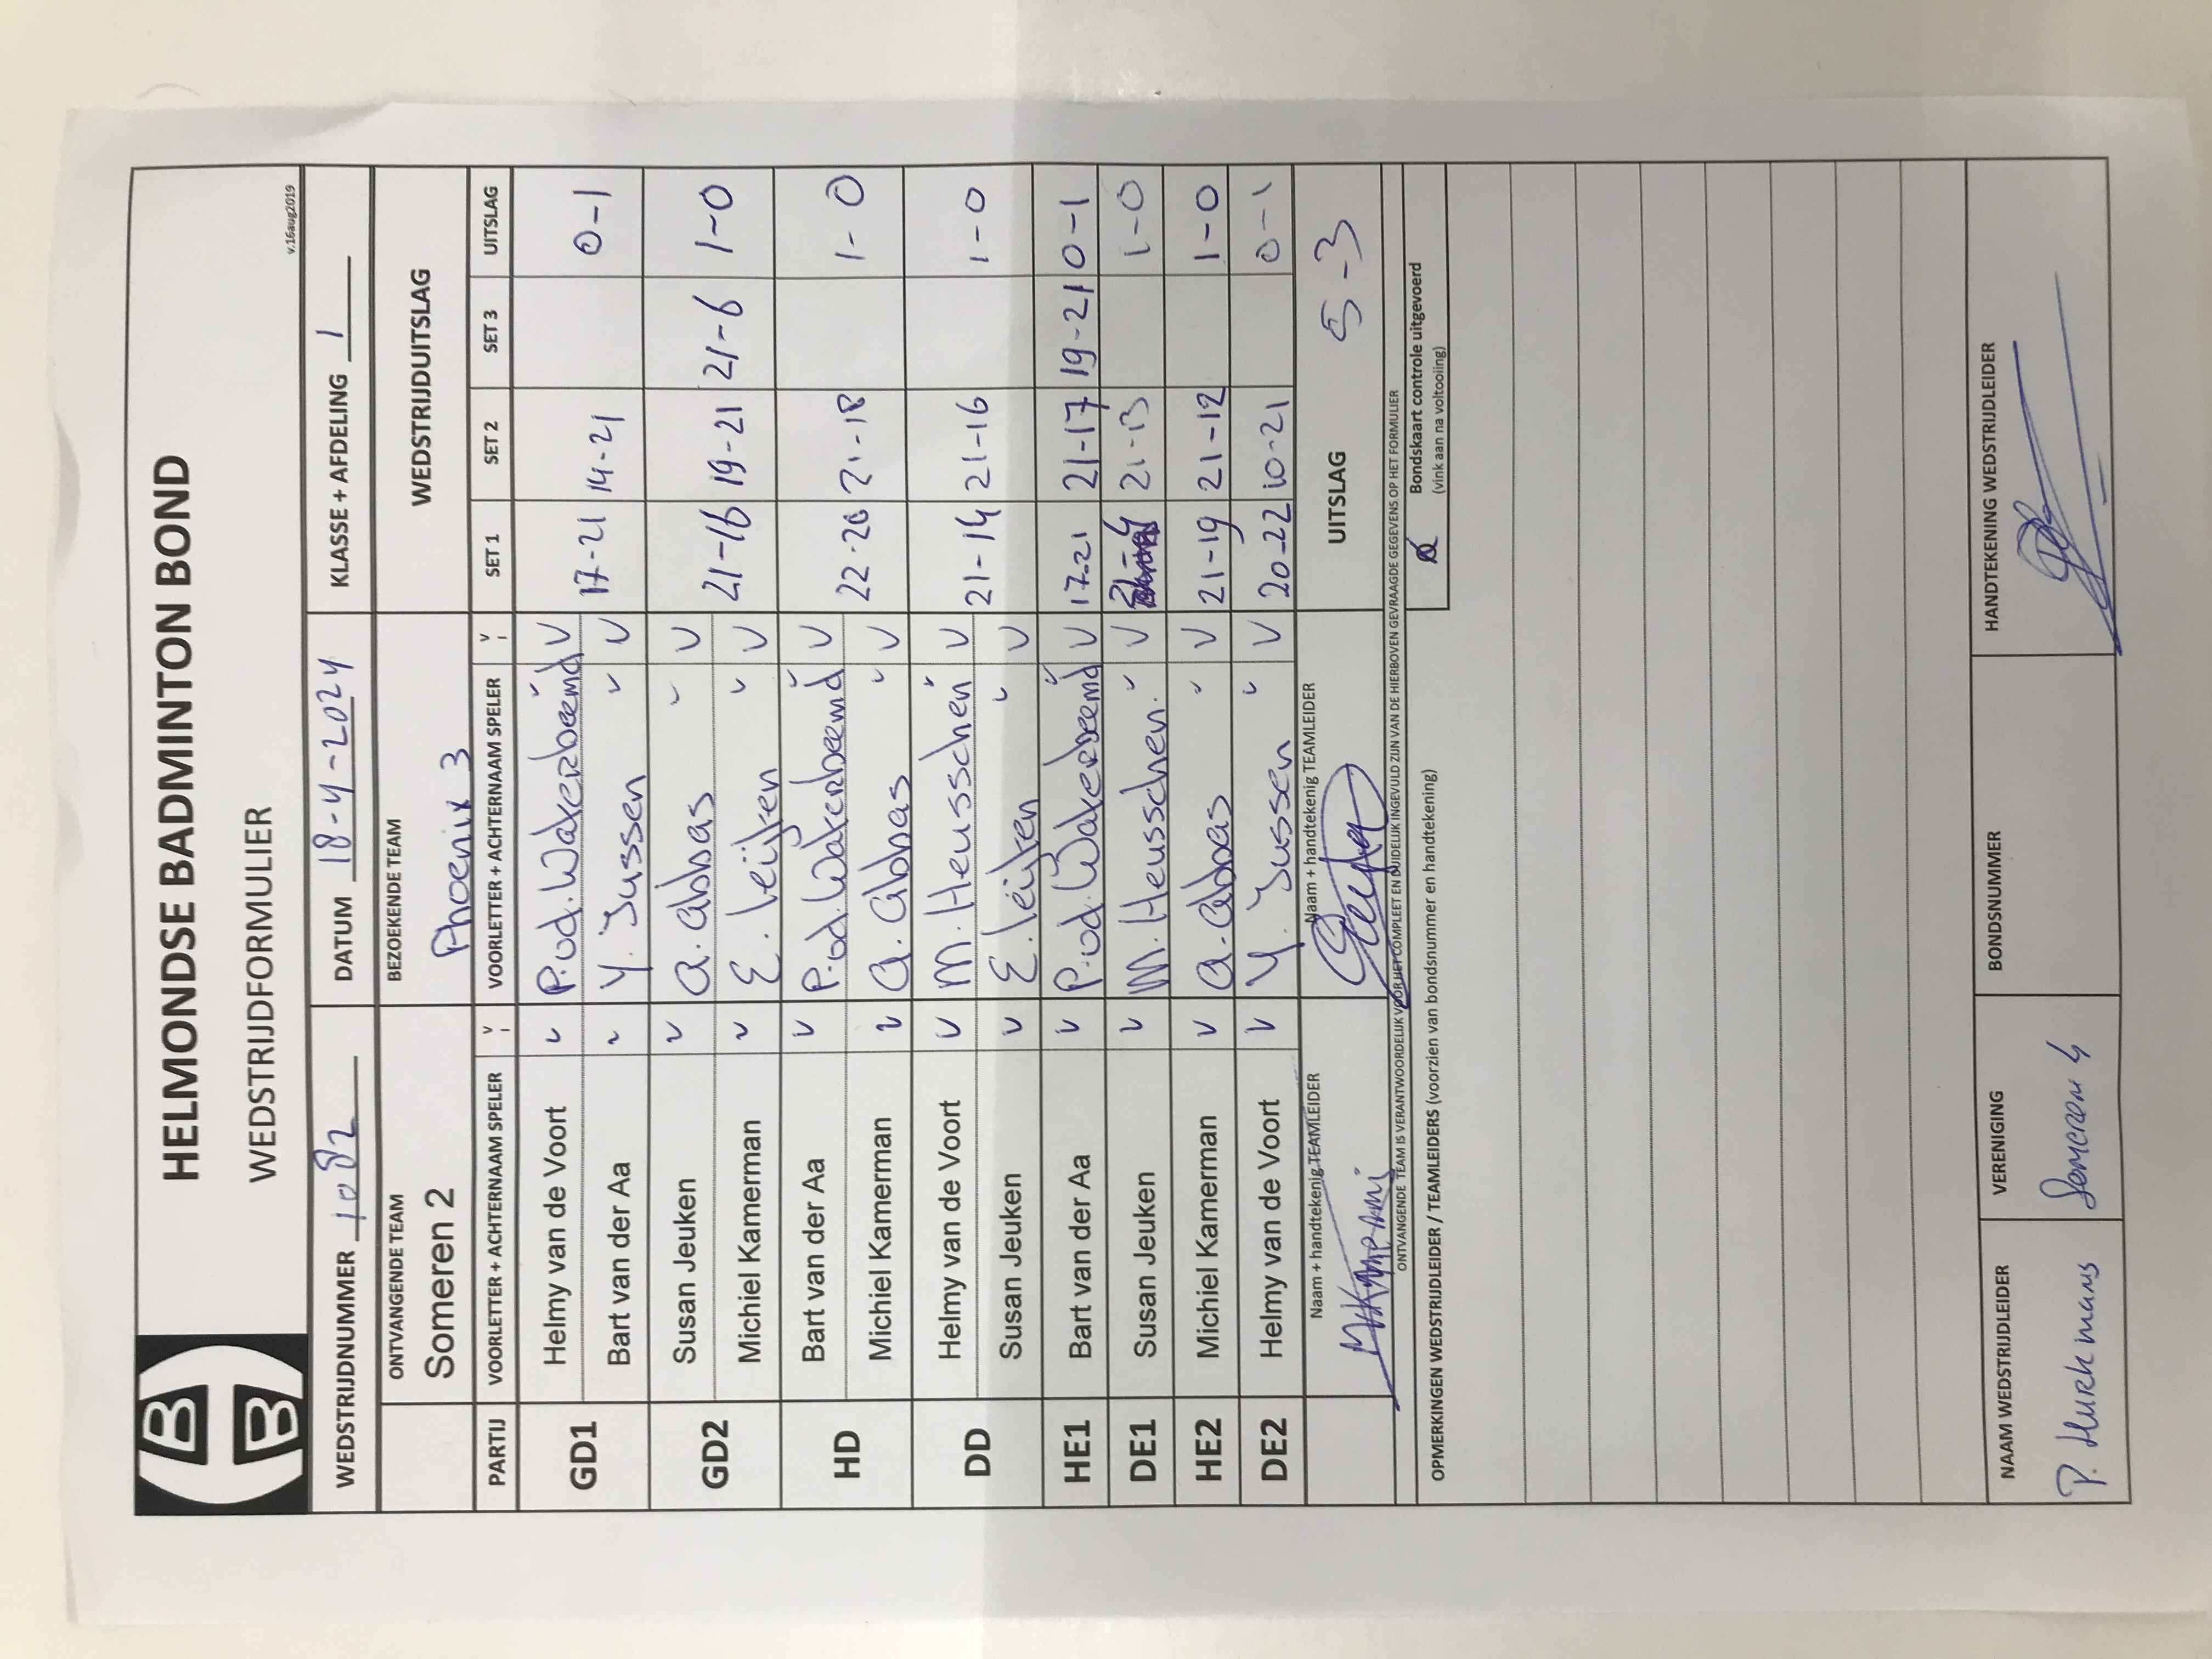 HELMONDSE BADMINTON BOND
WEDSTRIJDFORMULIER
v.16aug2019
WEDSTRIJDNUMMER 1082 DATUM 18-4-2024 KLASSE + AFDELING 1
ONTVANGENDE TEAM BEZOEKENDE TEAM WEDSTRIJDUITSLAG
Someren 2 Phoenix 3
PARTIJ VOORLETTER + ACHTERNAAM SPELER V VOORLETTER + ACHTERNAAM SPELER V SET 1 SET 2 SET 3 UITSLAG
GD1 Helmy van de Voort v P.vd.Wakerbeemd v V 17-21 14-21 0-1
Bart van der Aa v Y. Jussen v V
GD2 Susan Jeuken v a. abbas v V 21-16 19-21 21-6 1-0
Michiel Kamerman v E. Leijten v V
HD Bart van der Aa v P.vd.Wakerbeemd v V 22-20 21-18 1-0
Michiel Kamerman v a. abbas v V
DD Helmy van de Voort v M. Heusschen v V 21-14 21-16 1-0
Susan Jeuken v E. leijten v V
HE1 Bart van der Aa v P.vd.Wakerbeemd v V 17-21 21-17 19-21 0-1
DE1 Susan Jeuken v M. Heusschen. v V 21-13 1-0
HE2 Michiel Kamerman v a. abbas v V 21-19 21-12 1-0
DE2 Helmy van de Voort v Y. Jussen v V 20-22 10-21 0-1
Naam + handtekenig TEAMLEIDER Naam + handtekenig TEAMLEIDER UITSLAG 5-3
ONTVANGENDE TEAM IS VERANTWOORDELIJK VOOR HET COMPLEET EN DUIDELIJK INGEVULD ZIJN VAN DE HIERBOVEN GEVRAAGDE GEGEVENS OP HET FORMULIER
OPMERKINGEN WEDSTRIJDLEIDER / TEAMLEIDERS (voorzien van bondsnummer en handtekening) Bondskaart controle uitgevoerd
(vink aan na voltooiing)
NAAM WEDSTRIJDLEIDER VERENIGING BONDSNUMMER HANDTEKENING WEDSTRIJDLEIDER
P. Hurkmans Someren 4